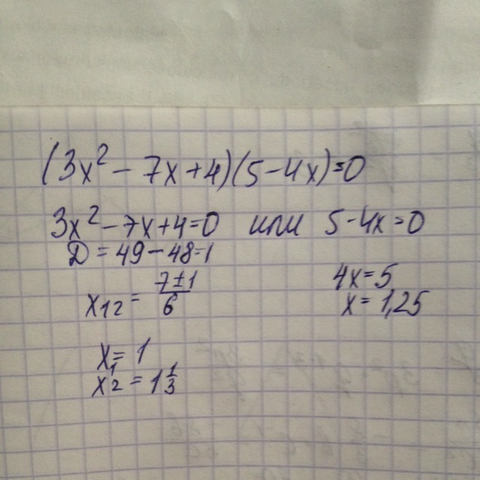 (3x² − 7x + 4)(5 − 4x) = 0
3x² − 7x + 4 = 0 или 5 − 4x = 0
D = 49 − 48 = 1
4x = 5
x₁₂ = (7 ± 1)/6
x = 1,25
x₁ = 1
x₂ = 1 1/3